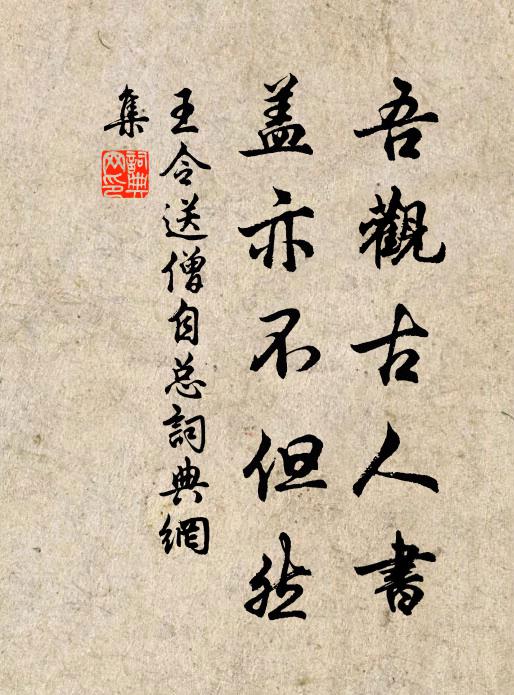 吾觀古人書
盖亦不但然
王令送僧自总詞典網
集
詞典网印